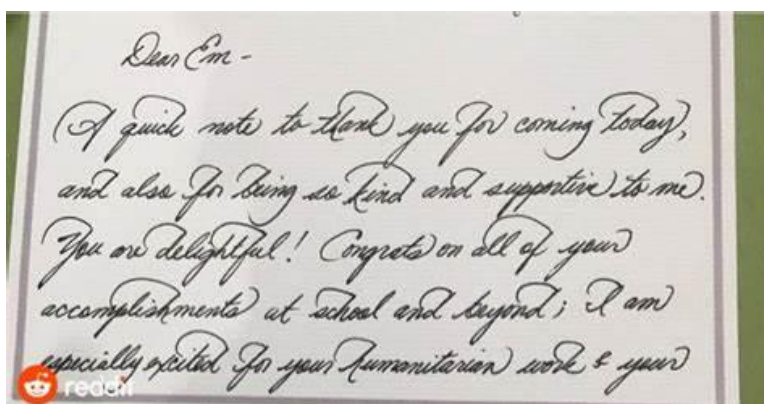 Dear Em -
A quick note to thank you for coming today,
and also for being so kind and supportive to me.
You are delightful! Congrats on all of your
accomplishments at school and beyond; I am
especially excited for your humanitarian work & your
reddit